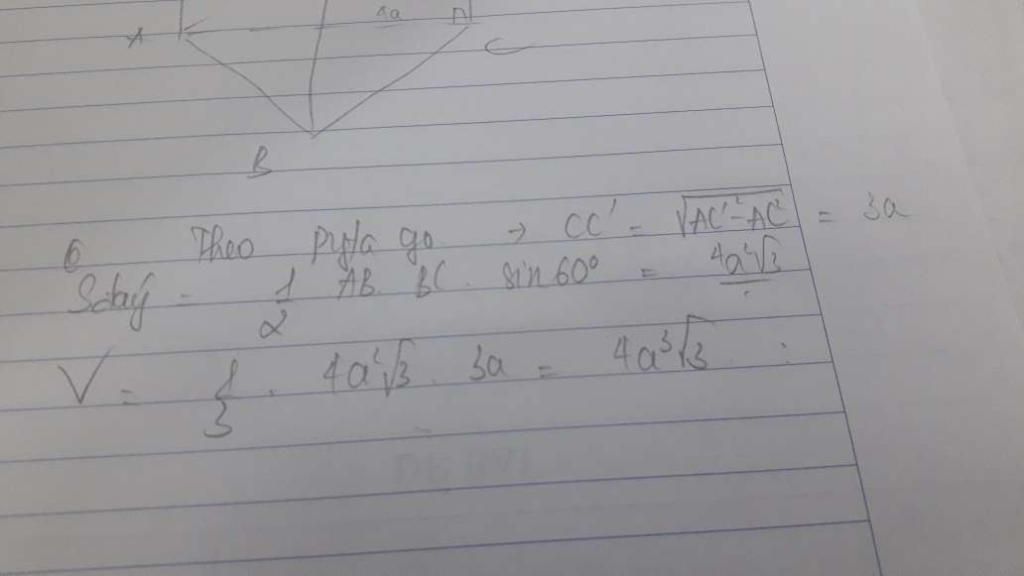 4a
A
C
B
6 Theo pytago → CC' = √AC'² - AC² = 3a
Sđáy = 1/2 AB. BC. sin60° = 4a²√3
V = 1/3 . 4a²√3 . 3a = 4a³√3